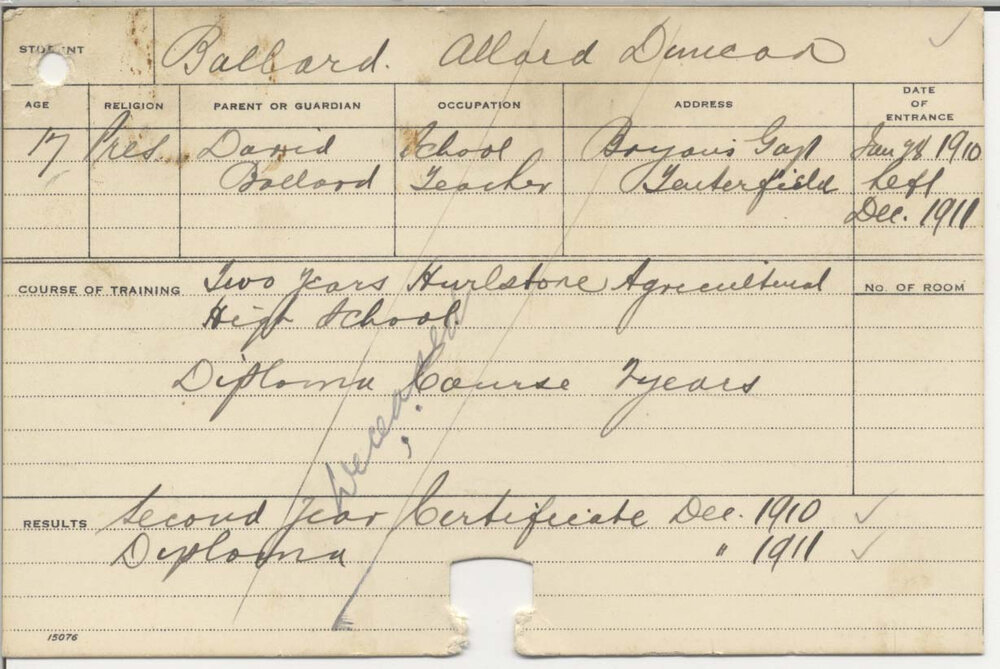 STUDENT Ballard. Allard Duncan
AGE RELIGION PARENT OR GUARDIAN OCCUPATION ADDRESS DATE OF ENTRANCE
17 Pres. David School Bryans Gap Jan 28 1910
Ballard Teacher Tenterfield left
Dec. 1911
COURSE OF TRAINING Two years Hurlstone Agricultural No. OF ROOM
High School.
Diploma Course 2 years
deceased
RESULTS Second Year Certificate Dec. 1910
Diploma " 1911
15076